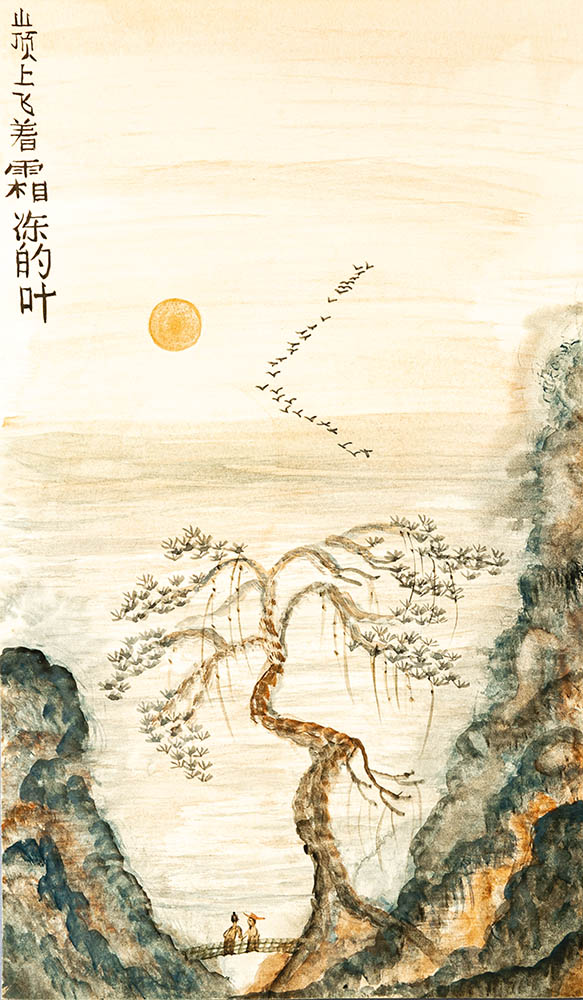 山顶上飞着霜冻的叶